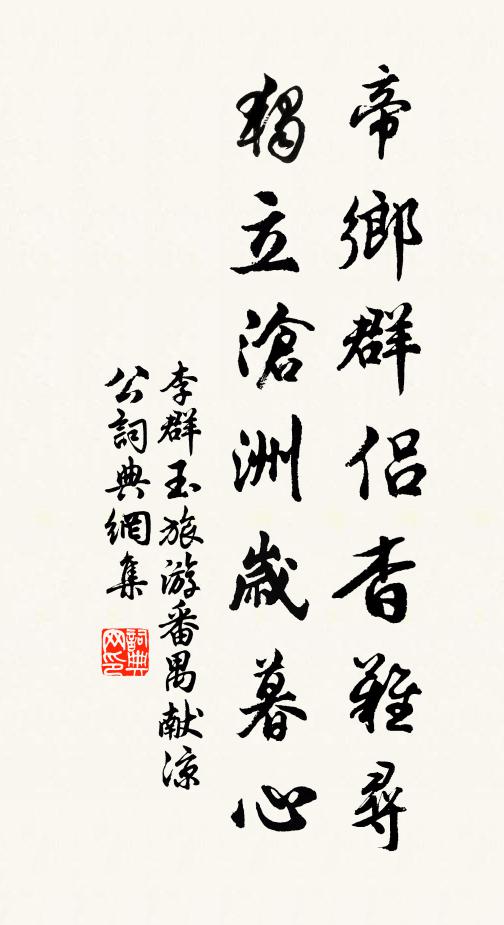 帝鄉群侣杳難尋
獨立滄洲歲暮心
李群玉旅游番禺献凉
公詞典網集
詞典网印